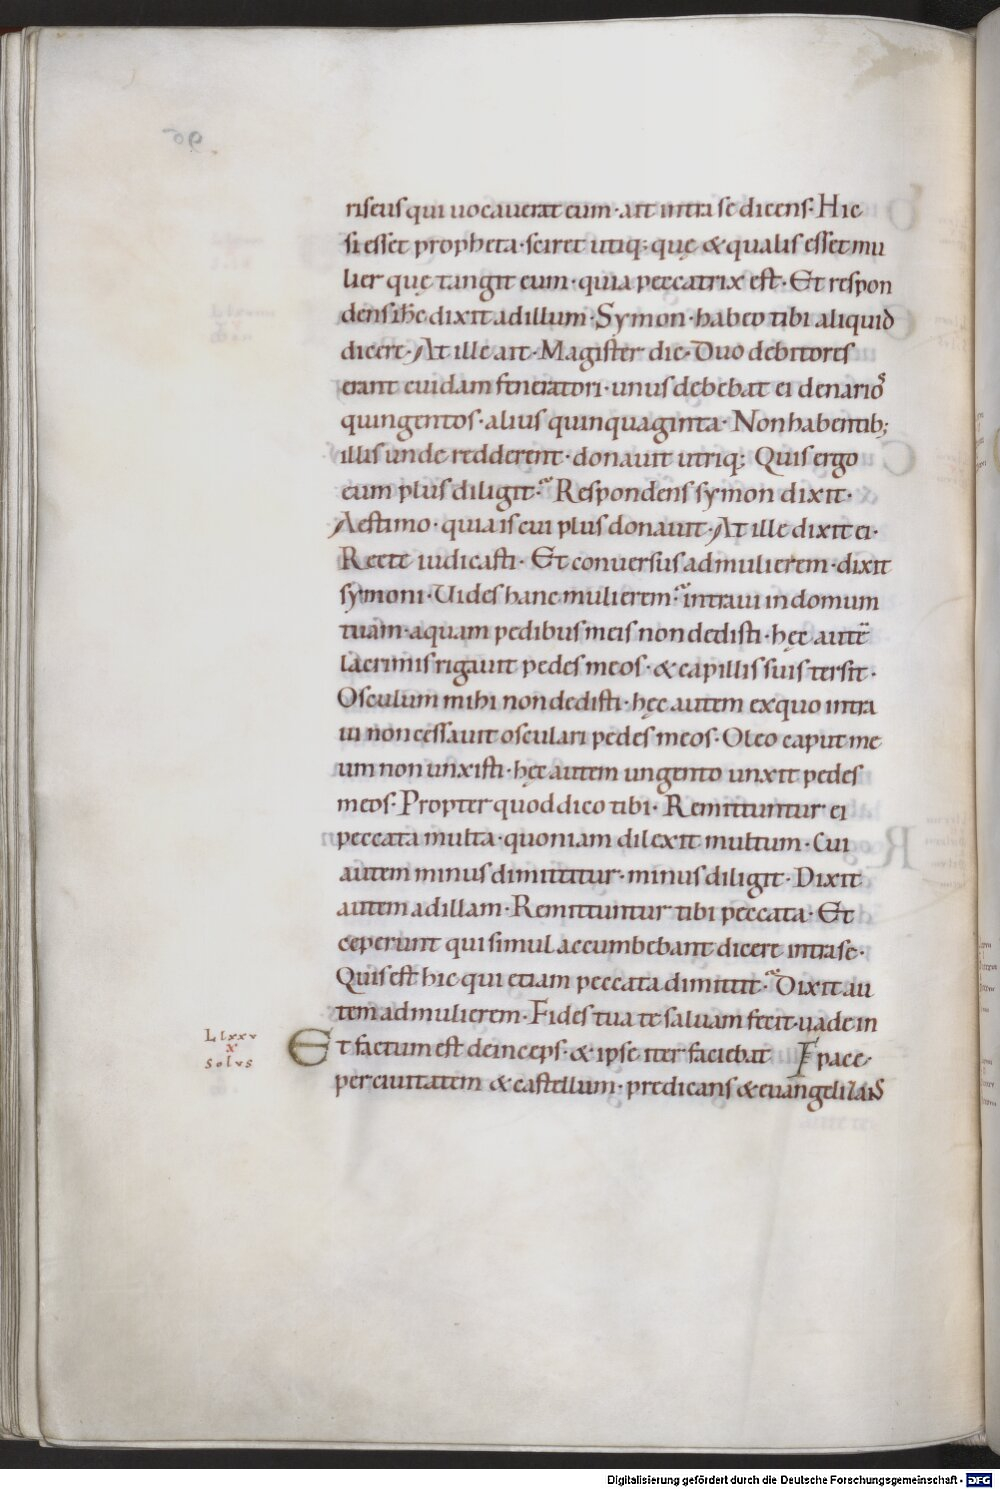 riseus qui uocauerat eum · ait intra se dicens · Hic
si esset propheta · sciret utiq; quę & qualis esset mu
lier quę tangit eum · quia peccatrix est · Et respon
dens ih̄c dixit ad illum · Symon · habeo tibi aliquid
dicere · At ille ait · Magister dic · Duo debitores
erant cuidam feneratori · unus debebat ei denarios
quingentos · alius quinquaginta · Non habentib;
illis unde redderent · donauit utriq; Quis ergo
eum plus diligit · Respondens symon dixit ·
Aestimo · quia is cui plus donauit · At ille dixit ei ·
Recte iudicasti · Et conuersus ad mulierem · dixit
symoni · Uides hanc mulierem · intraui in domum
tuam · aquam pedibus meis non dedisti · hęc autē
lacrimis rigauit pedes meos · & capillis suis tersit ·
Osculum mihi non dedisti · hęc autem ex quo intra
ui non cessauit osculari pedes meos · Oleo caput me
um non unxisti · hęc autem ungento unxit pedes
meos · Propter quod dico tibi · Remittuntur ei
peccata multa · quoniam dilexit multum · Cui
autem minus dimittitur · minus diligit · Dixit
autem ad illam · Remittuntur tibi peccata · Et
ceperunt qui simul accumbebant dicere intra se ·
Quis est hic qui etiam peccata dimittit · Dixit au
tem ad mulierem · Fides tua te saluam fecit · uade in
Llxxv
x
Solus
Et factum est deinceps · & ipse iter faciebat pace ·
per ciuitatem & castellum · predicans & euangelizans
Digitalisierung gefördert durch die Deutsche Forschungsgemeinschaft - DFG